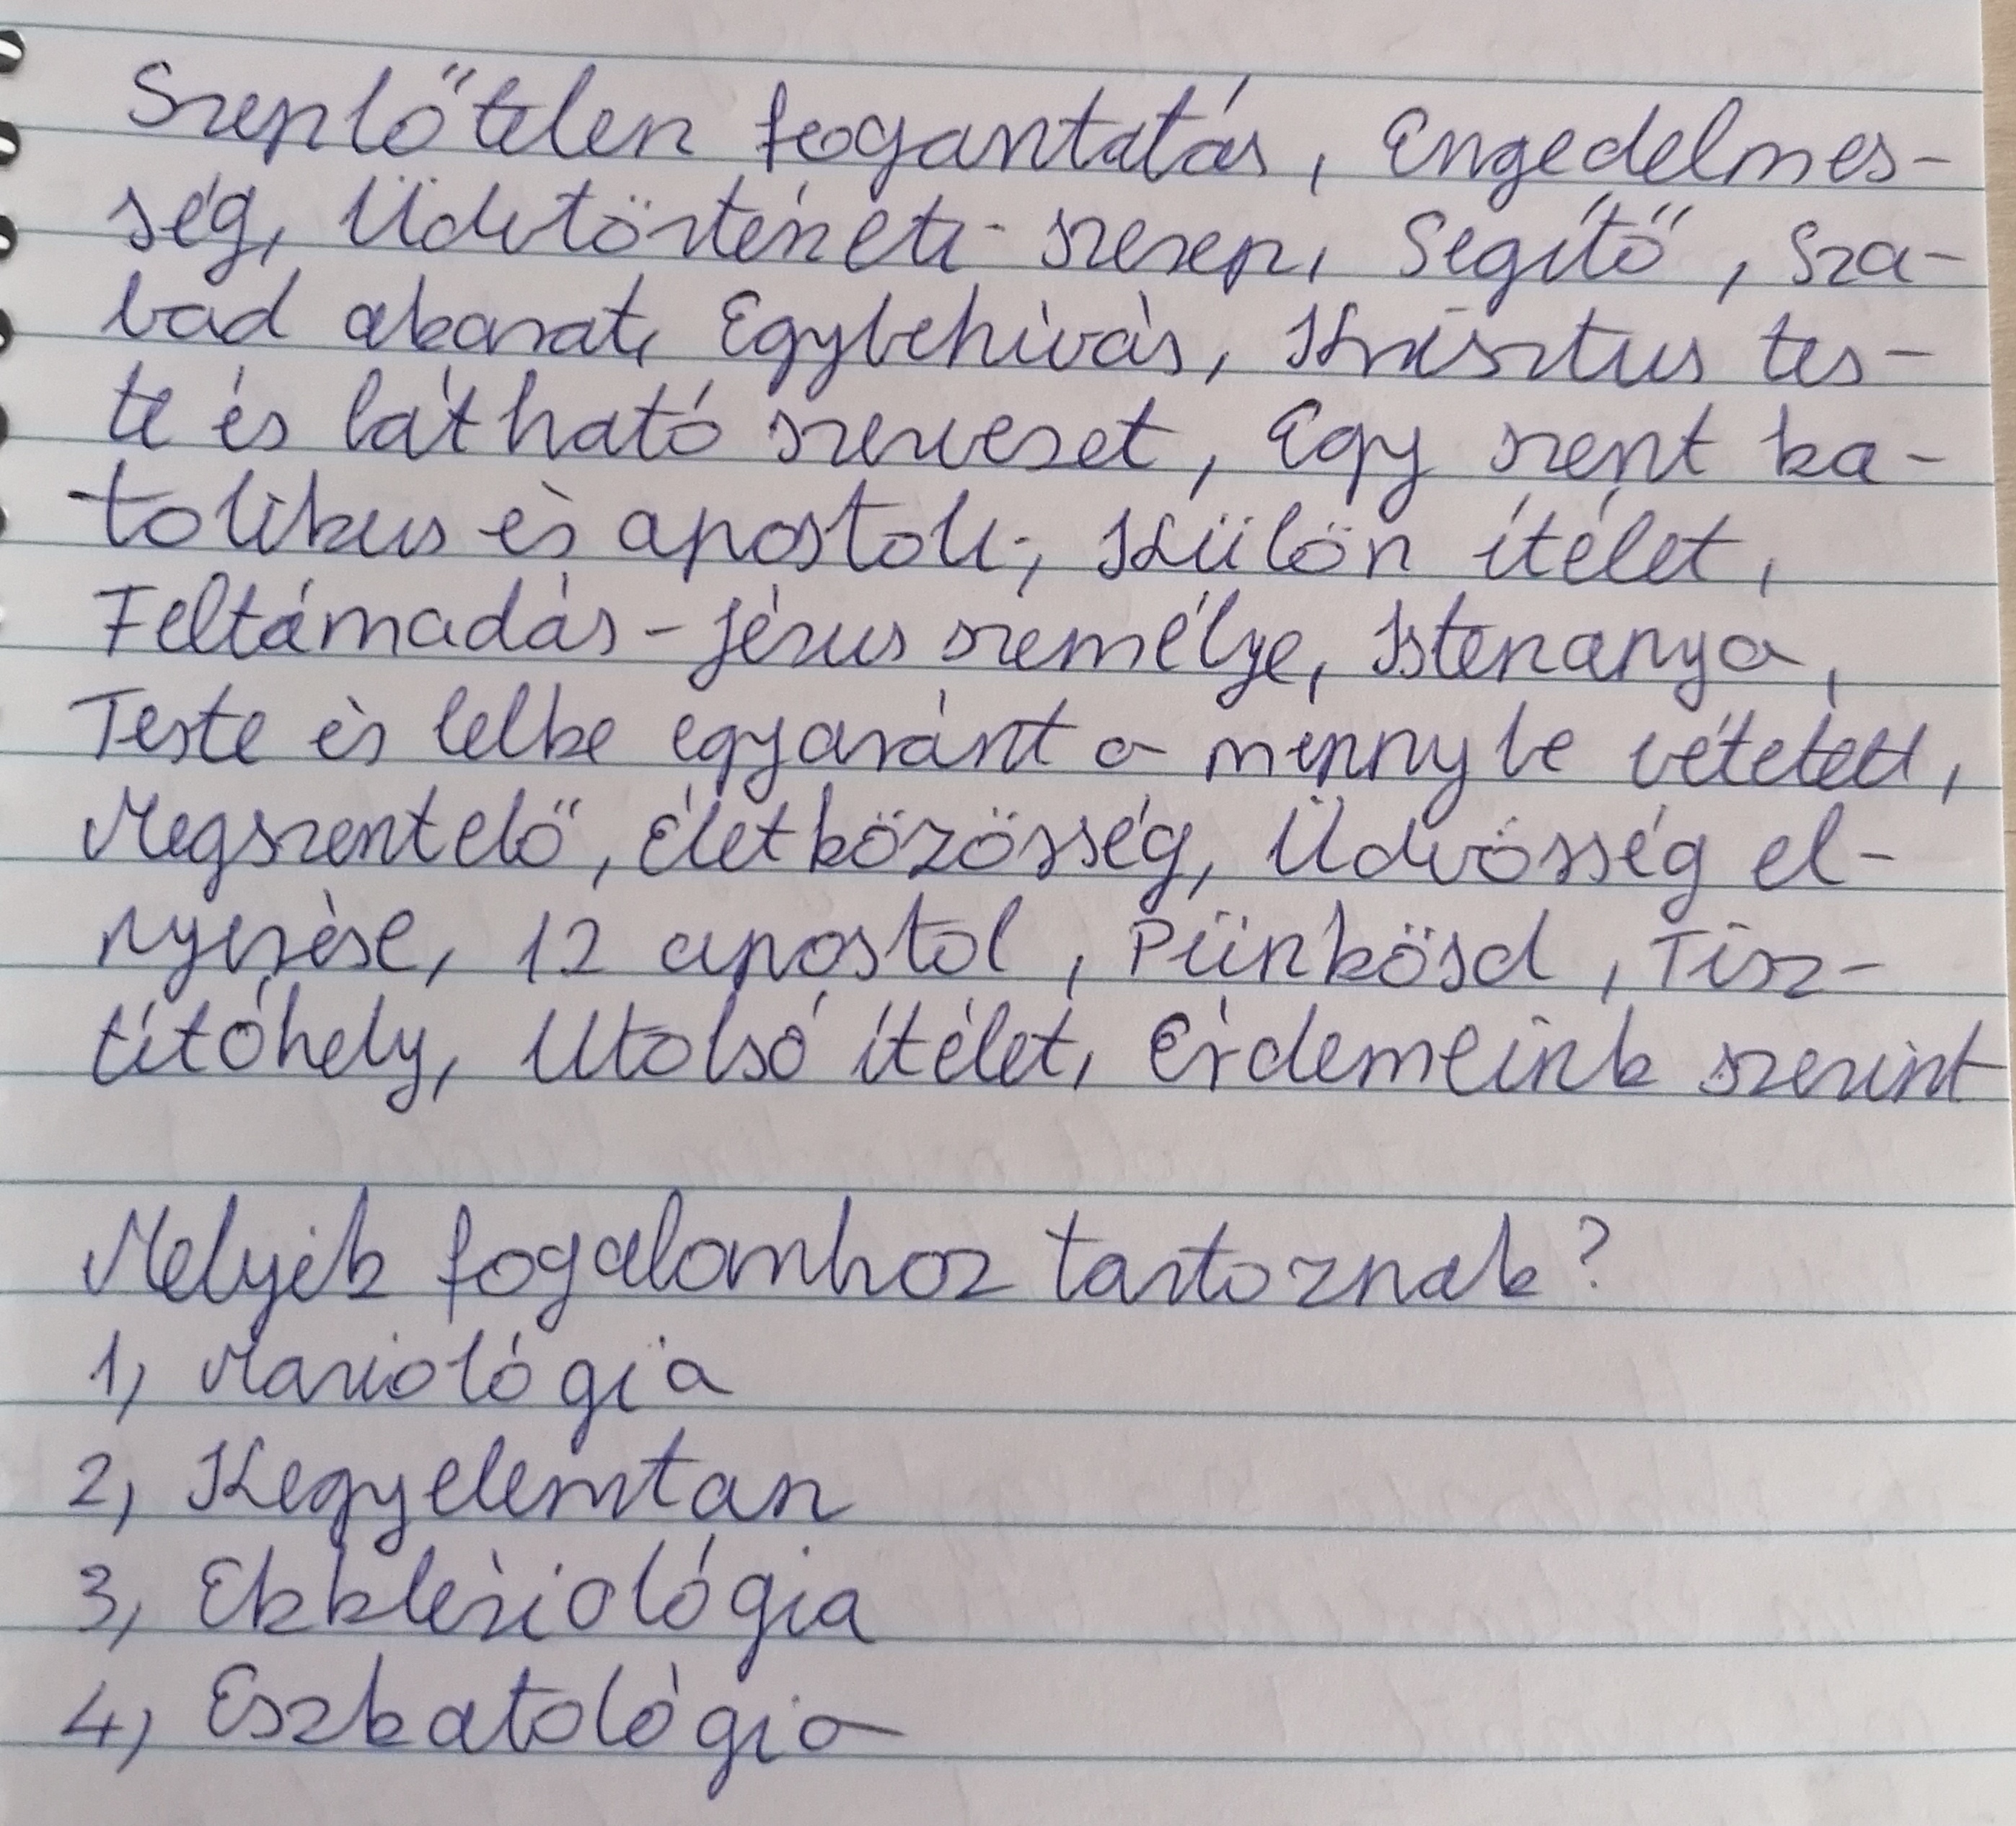 Szeplőtelen fogantatás, Engedelmes-
ség, Üdvtörténeti szerep, Segítő, Sza-
bad akarat, Egybehívás, Krisztus tes-
te és látható szervezet, Egy szent ka-
tolikus és apostoli, Külön ítélet,
Feltámadás - Jézus személye, Istenanya,
Teste és lelke egyaránt a mennybe vétetett,
Megszentelő, Életközösség, Üdvösség el-
nyerése, 12 apostol, Pünkösd, Tisz-
títóhely, Utolsó ítélet, Érdemeink szerint
Melyik fogalomhoz tartoznak?
1, Mariológia
2, Kegyelemtan
3, Ekkléziológia
4, Eszkatológia